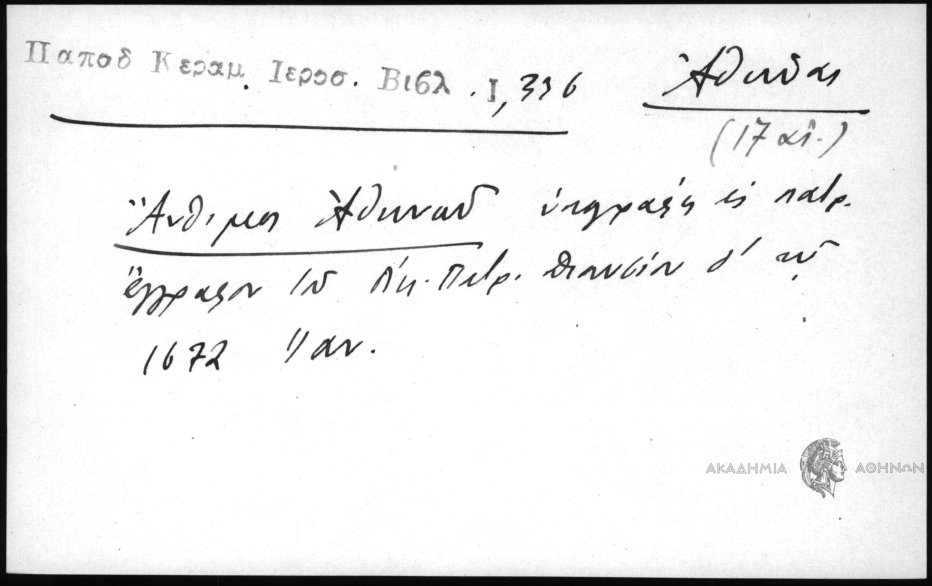 Παποδ Κεραμ. Ιεροσ. Βιβλ. Ι, 336
Ἀθῆναι
(17 αἰ.)
Ἄνθιμος Ἀθηνῶν ὑπογραφὴ εἰς πατρ.
ἔγγραφον τοῦ Οἰκ. Πατρ. Διονυσίου Δ' τῷ
1672 Ἰαν.
ΑΚΑΔΗΜΙΑ ΑΘΗΝΩΝ